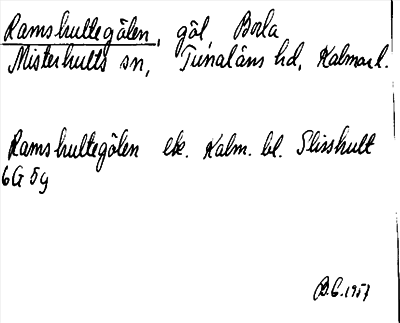 Ramshultegölen, göl, Borla
Misterhults sn, Tunaläns hd, Kalmar l.
Ramshultegölen ek. Kalm. bl. Slisshult
6G 5g
B.G. 1957